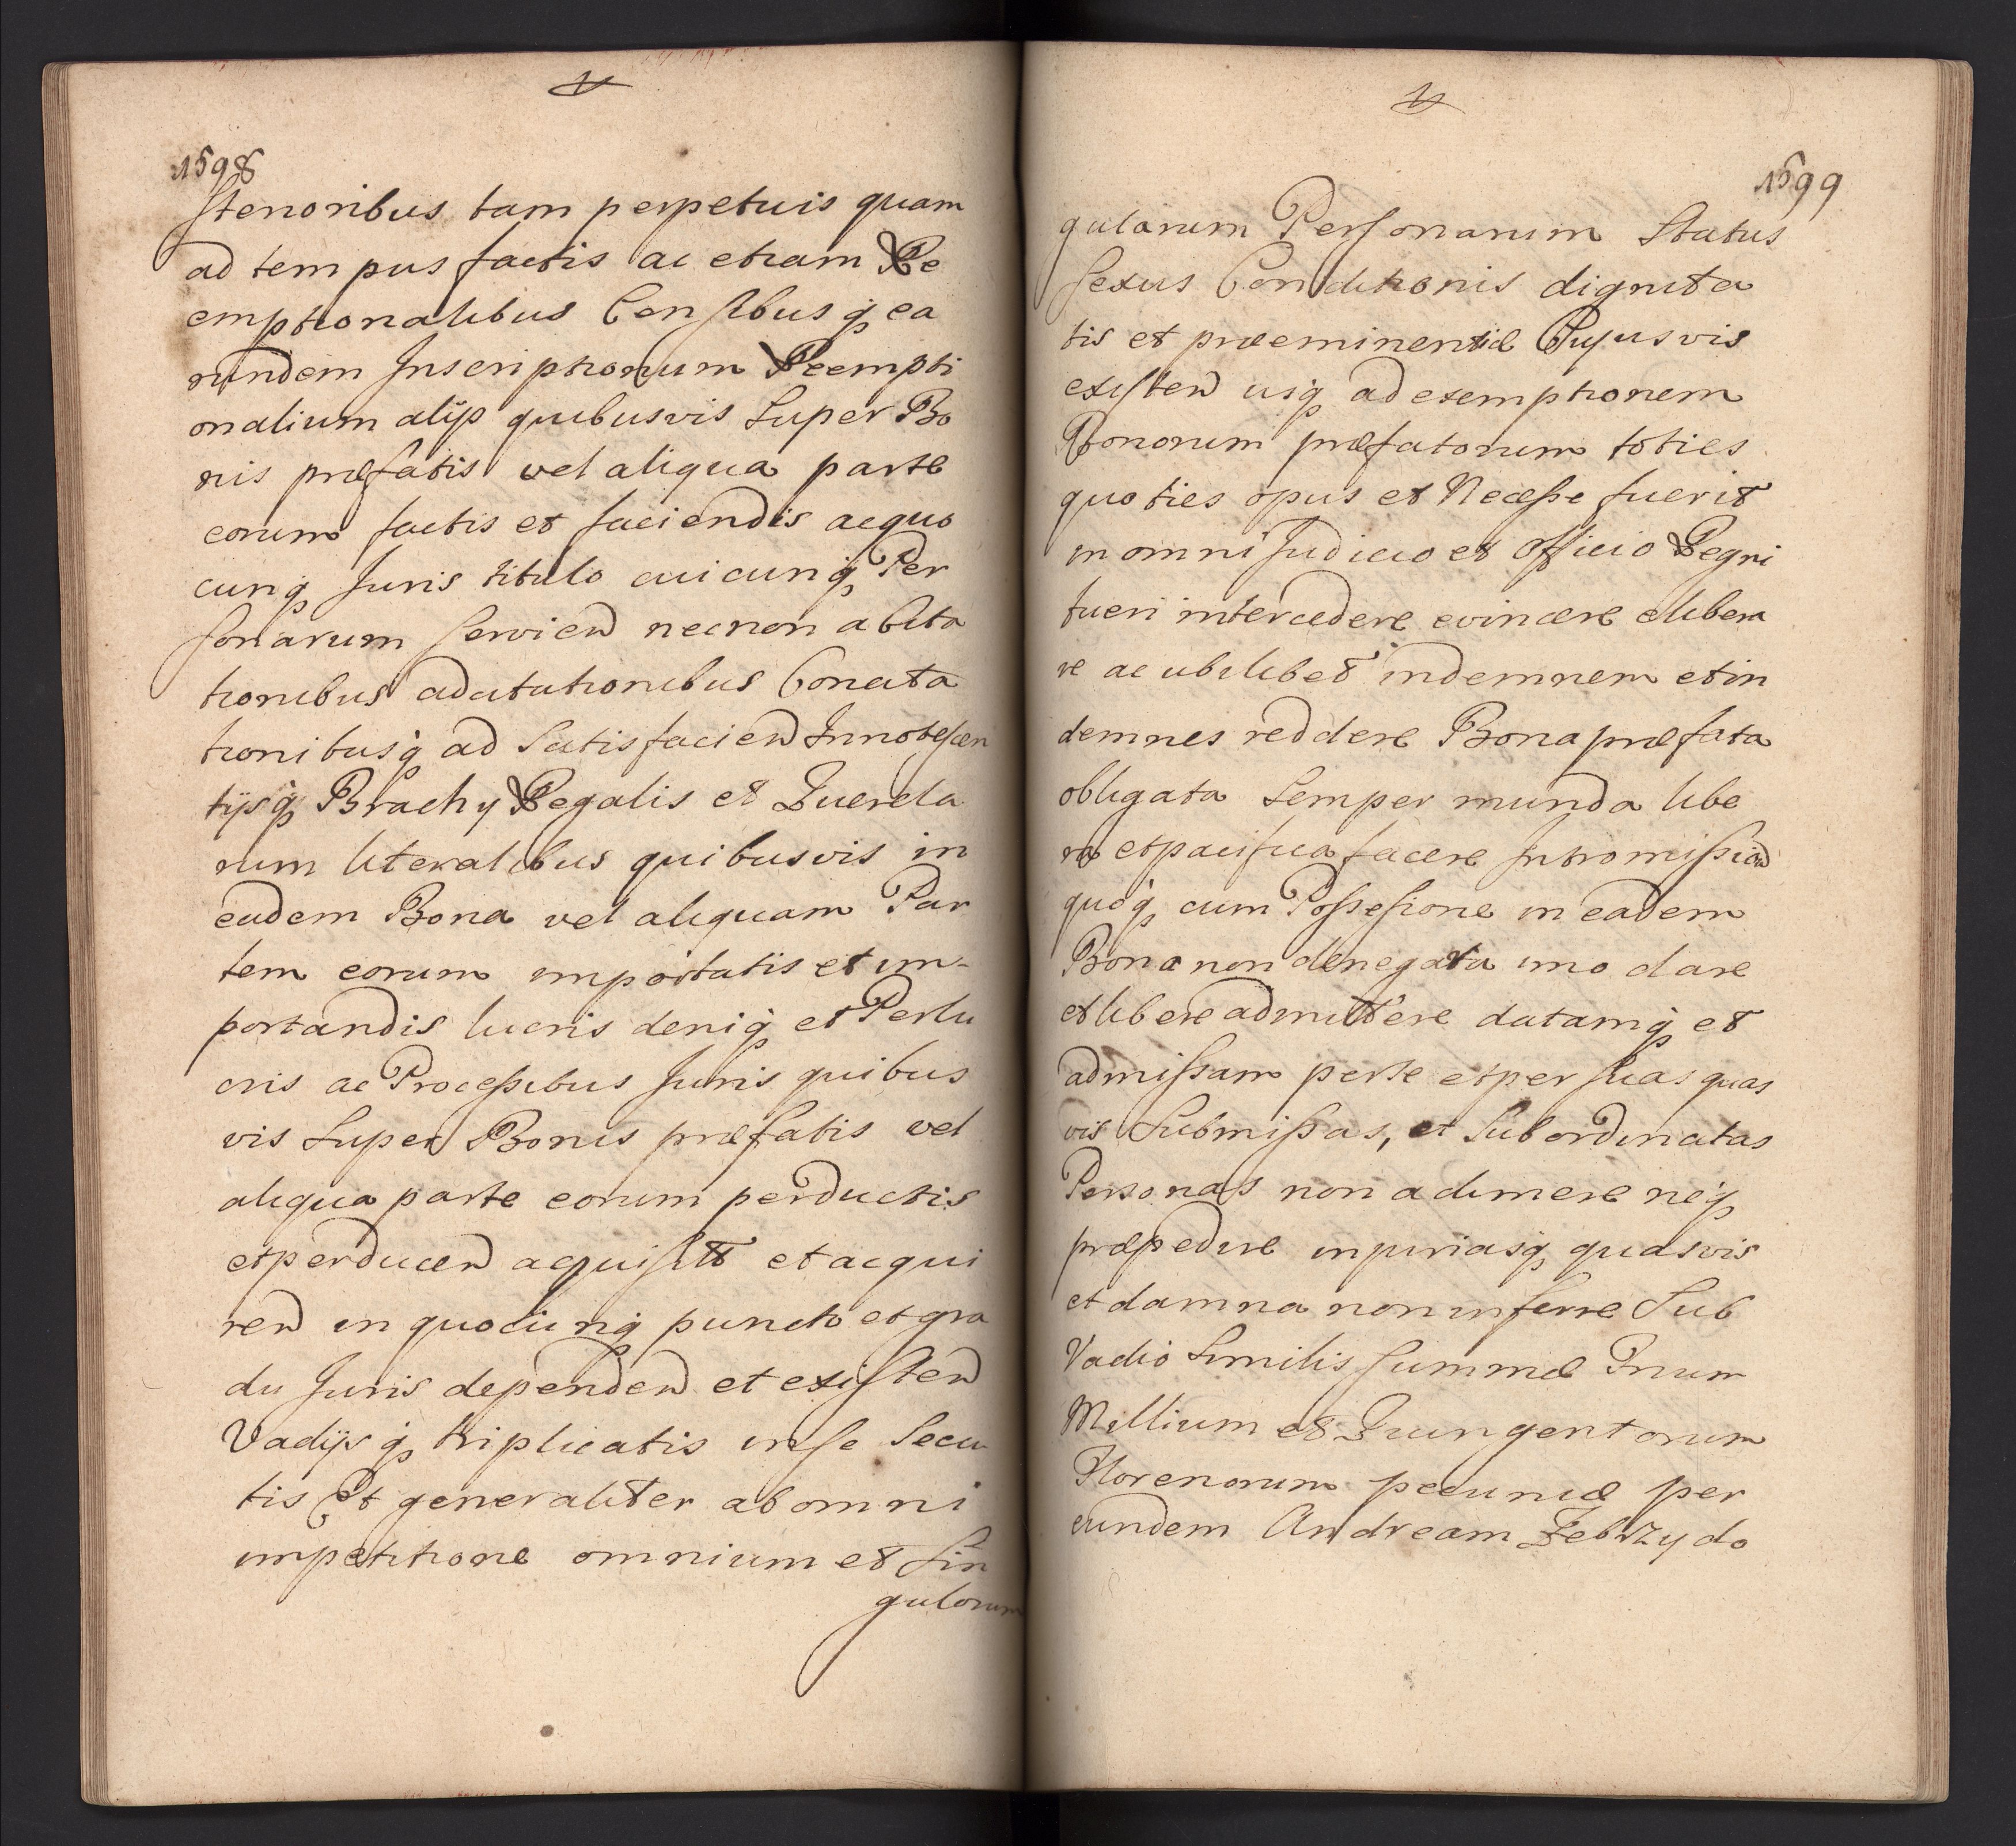 1598
stenoribus tam perpetuis quam
ad tempus factis ac etiam Re
emptionalibus Censibusq; ea
rundem Inscriptionum Reempti
onalium alijs quibusvis Super Bo
nis præfatis vel aliqua parte
eorum factis et faciendis acquo
cunq; Juris titulo cuicunq; Per
sonarum servien necnon abita
tionibus adcitationibus Concita
tionibusq; ad Satisfacien Innotescen
tijsq; Brachy Regalis et Querela
rum literalibus quibusvis in
eadem Bona vel aliquam Par
tem eorum importatis et im-
portandis lucris deniq; et Perlu
cris ac Processibus Juris quibus
vis Super Bonis præfatis vel
aliqua parte eorum perductis
et perducen acquisitt et acqui
ren in quocunq; puncto et gra
du Juris dependen et existen
Vadijsq; triplicatis inse Secu
tis Et generaliter ab omni
impetitione omnium et Sin
gulorum
1599
gularum Personarum Status
Sexus Conditionis dignita
tis et præeminentiæ Cujusvis
existen usq; ad exemptionem
Bonorum præfatorum toties
quoties opus et Necesse fuerit
in omni Judicio et Officio Regni
tueri intercedere evincere elibera
re ac ubilibet indemnem et in
demnes reddere Bona præfata
obligata Semper munda libe
ra et pacifica facere Intromission
quoq; cum Possesione in eadem
Bona non denegata imo dare
et libere admittere datamq; et
admissam perse et per suas quas
vis Submissas, et Subordinatas
Personas non adimere neq;
præpedire injuriasq; quasvis
et damna non inferre Sub
Vadio Similis Summæ Trium
Millium et Quingentorum
Florenorum pecuniæ per
eundem Andream Zebrzydo